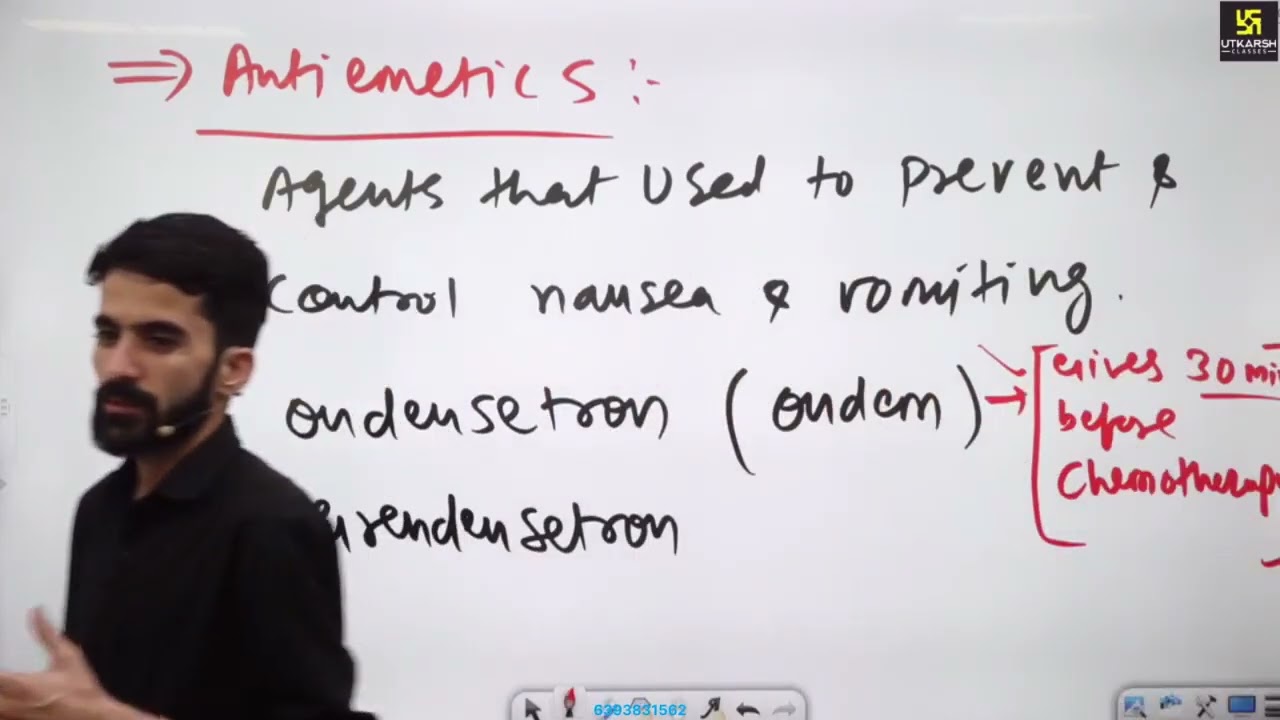 UTKARSH
CLASSES
⇒ Antiemetics :-
Agents that used to prevent &
Control nausea & vomiting.
ondensetron (ondem) →
Gives 30 min
before
Chemotherapy
6393831562